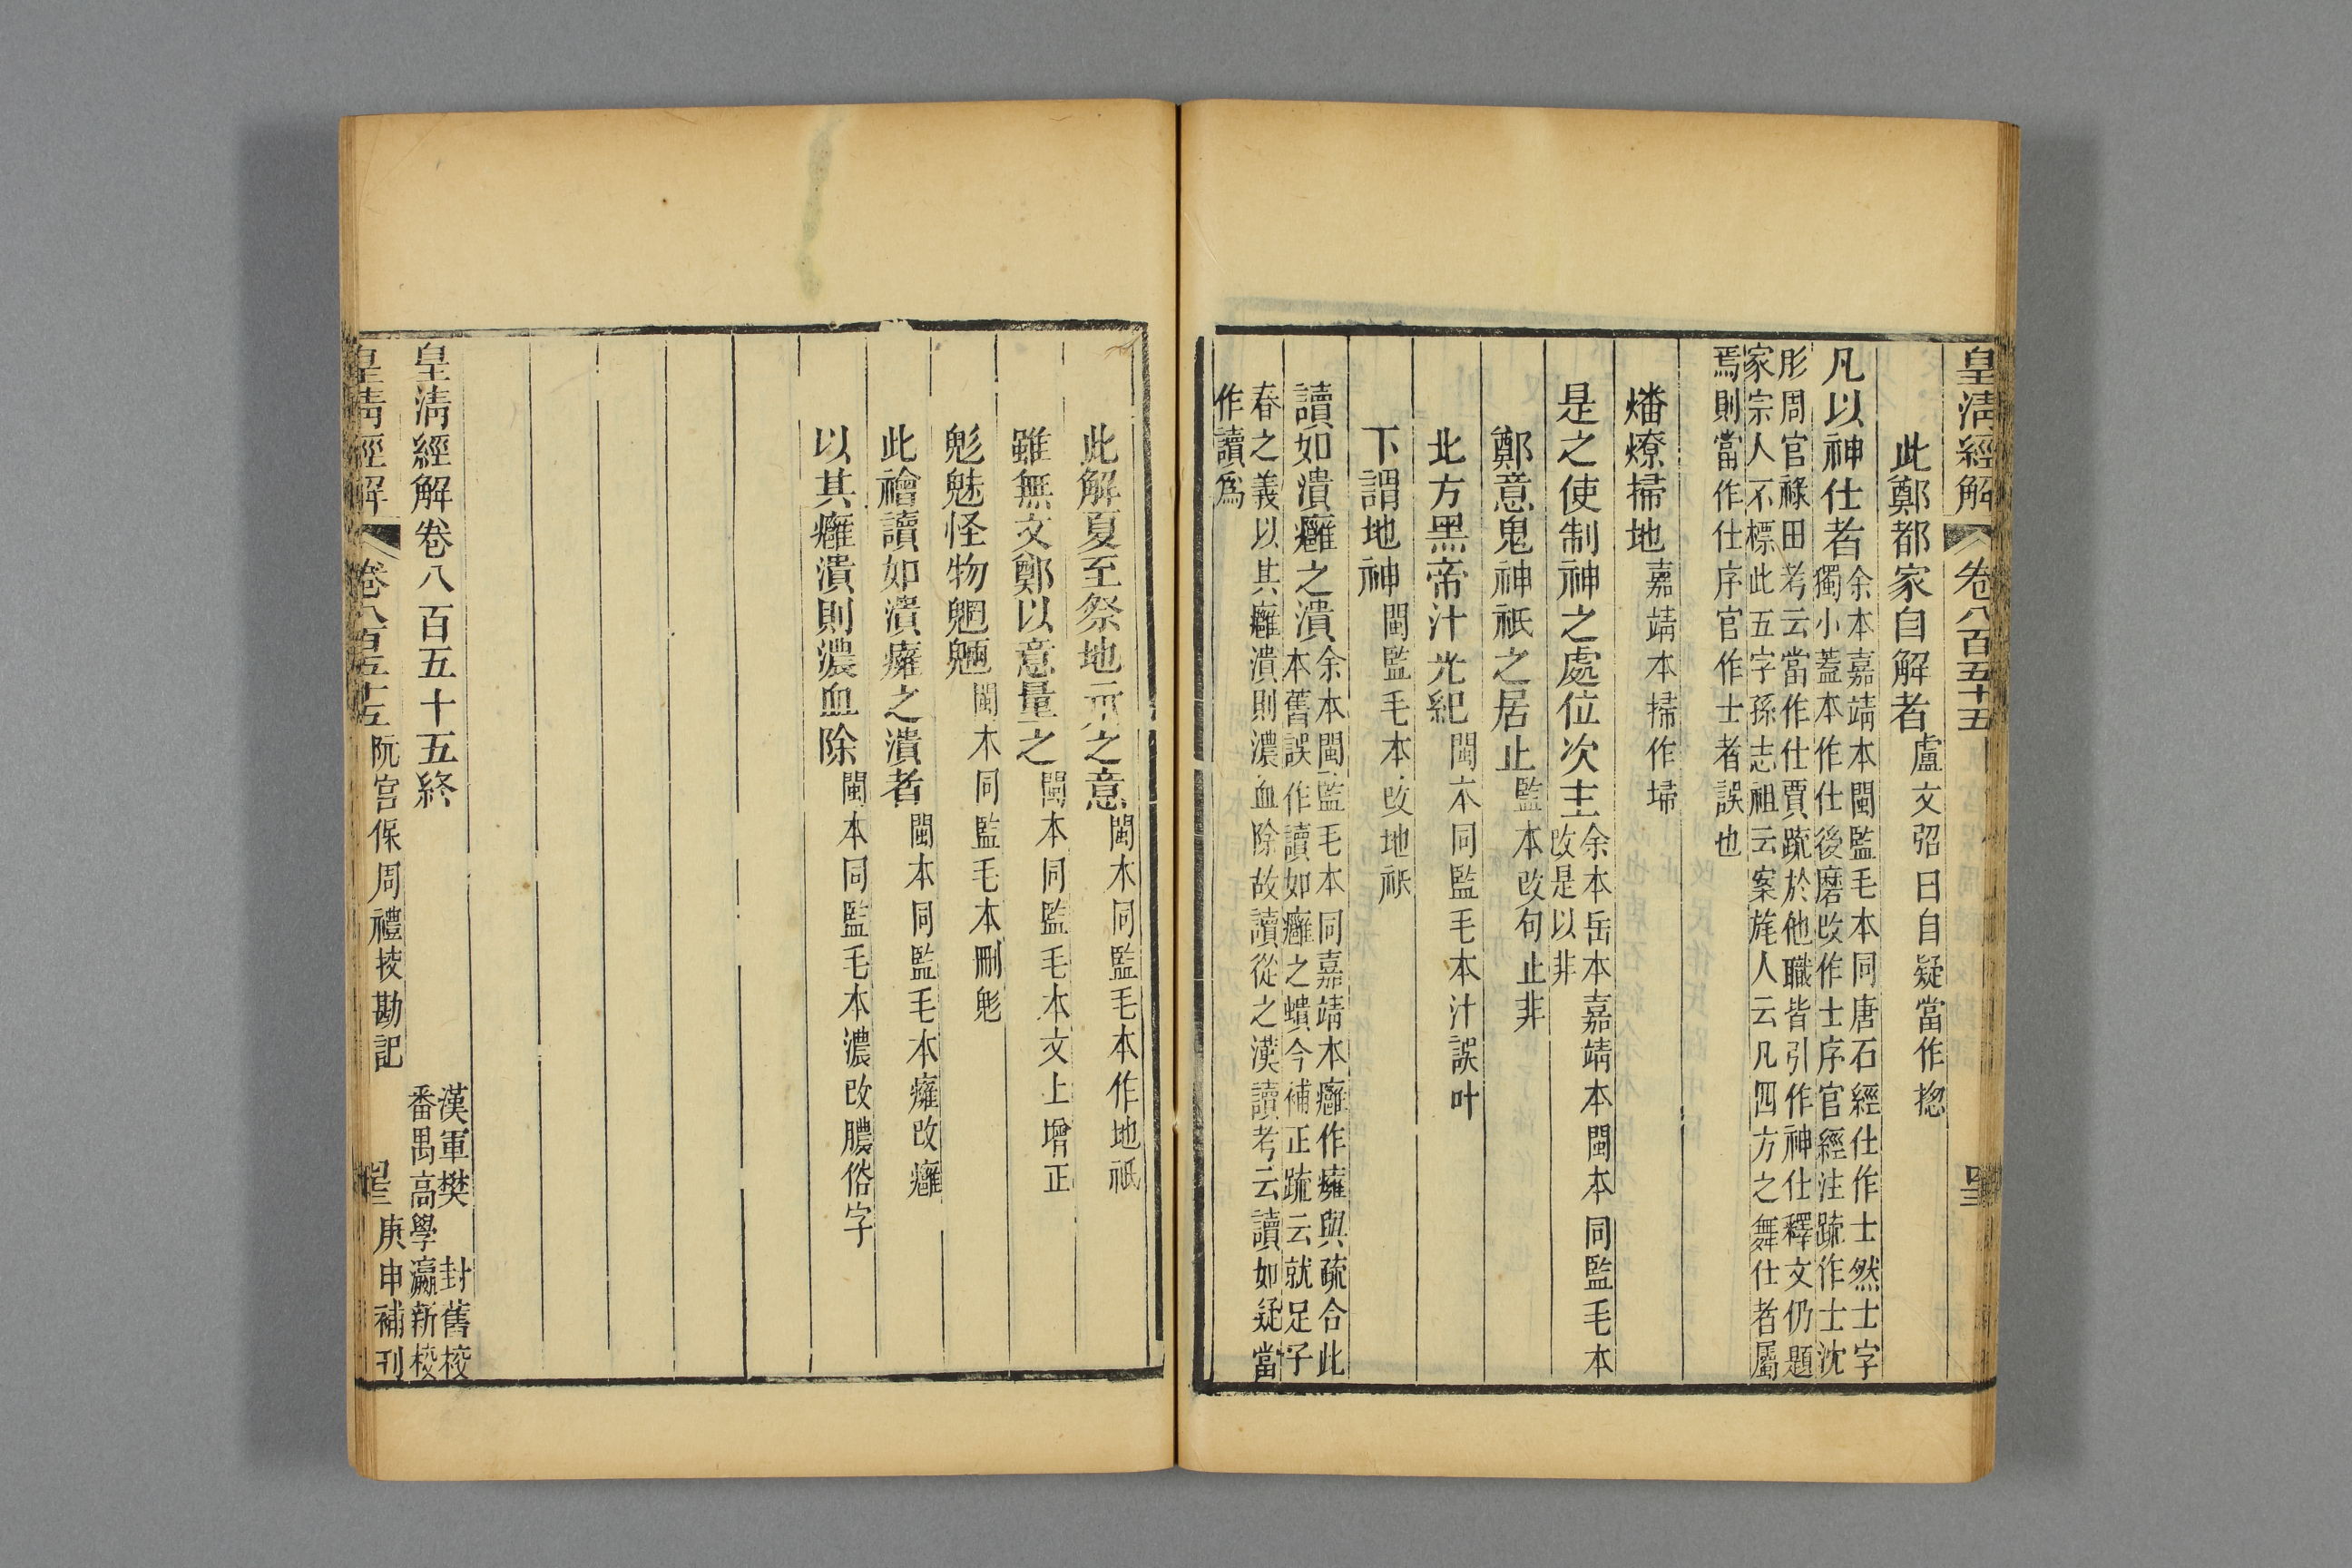 皇清經解 卷八百五十五
此鄭都家自解者盧文弨曰自疑當作揔
凡以神仕者余本嘉靖本閩監毛本同唐石經仕作士然士字
獨小蓋本作仕後磨改作士序官經注䟽作士沈
彤周官祿田考云當作仕賈䟽於他職皆引作神仕釋文仍題
家宗人不標此五字孫志祖云案旄人云凡四方之舞仕者屬
焉則當作仕序官作士者誤也
燔燎掃地嘉靖本掃作埽
是之使制神之處位次主余本岳本嘉靖本閩本同監毛本
改是以非
鄭意鬼神祇之居止監本改句止非
北方黑帝汁光紀閩本同監毛本汁誤叶
下謂地神閩監毛本改地祇
讀如潰癰之潰余本閩監毛本同嘉靖本癰作癕與疏合此
本舊誤作讀如癰之蟦今補正䟽云就足子
春之義以其癰潰則濃血除故讀從之漢讀考云讀如疑當
作讀爲
此解夏至祭地示之意閩本同監毛本作地祇
雖無文鄭以意量之閩本同監毛本文上增正
鬽魅怪物魍魎閩本同監毛本刪鬽
此禬讀如潰癕之潰者閩本同監毛本癕改癰
以其癰潰則濃血除閩本同監毛本濃改膿俗字
皇清經解卷八百五十五終
漢軍樊 封舊校
番禺高學瀛新校
皇清經解 卷八百五十五 阮宮保周禮挍勘記 庚申補刊